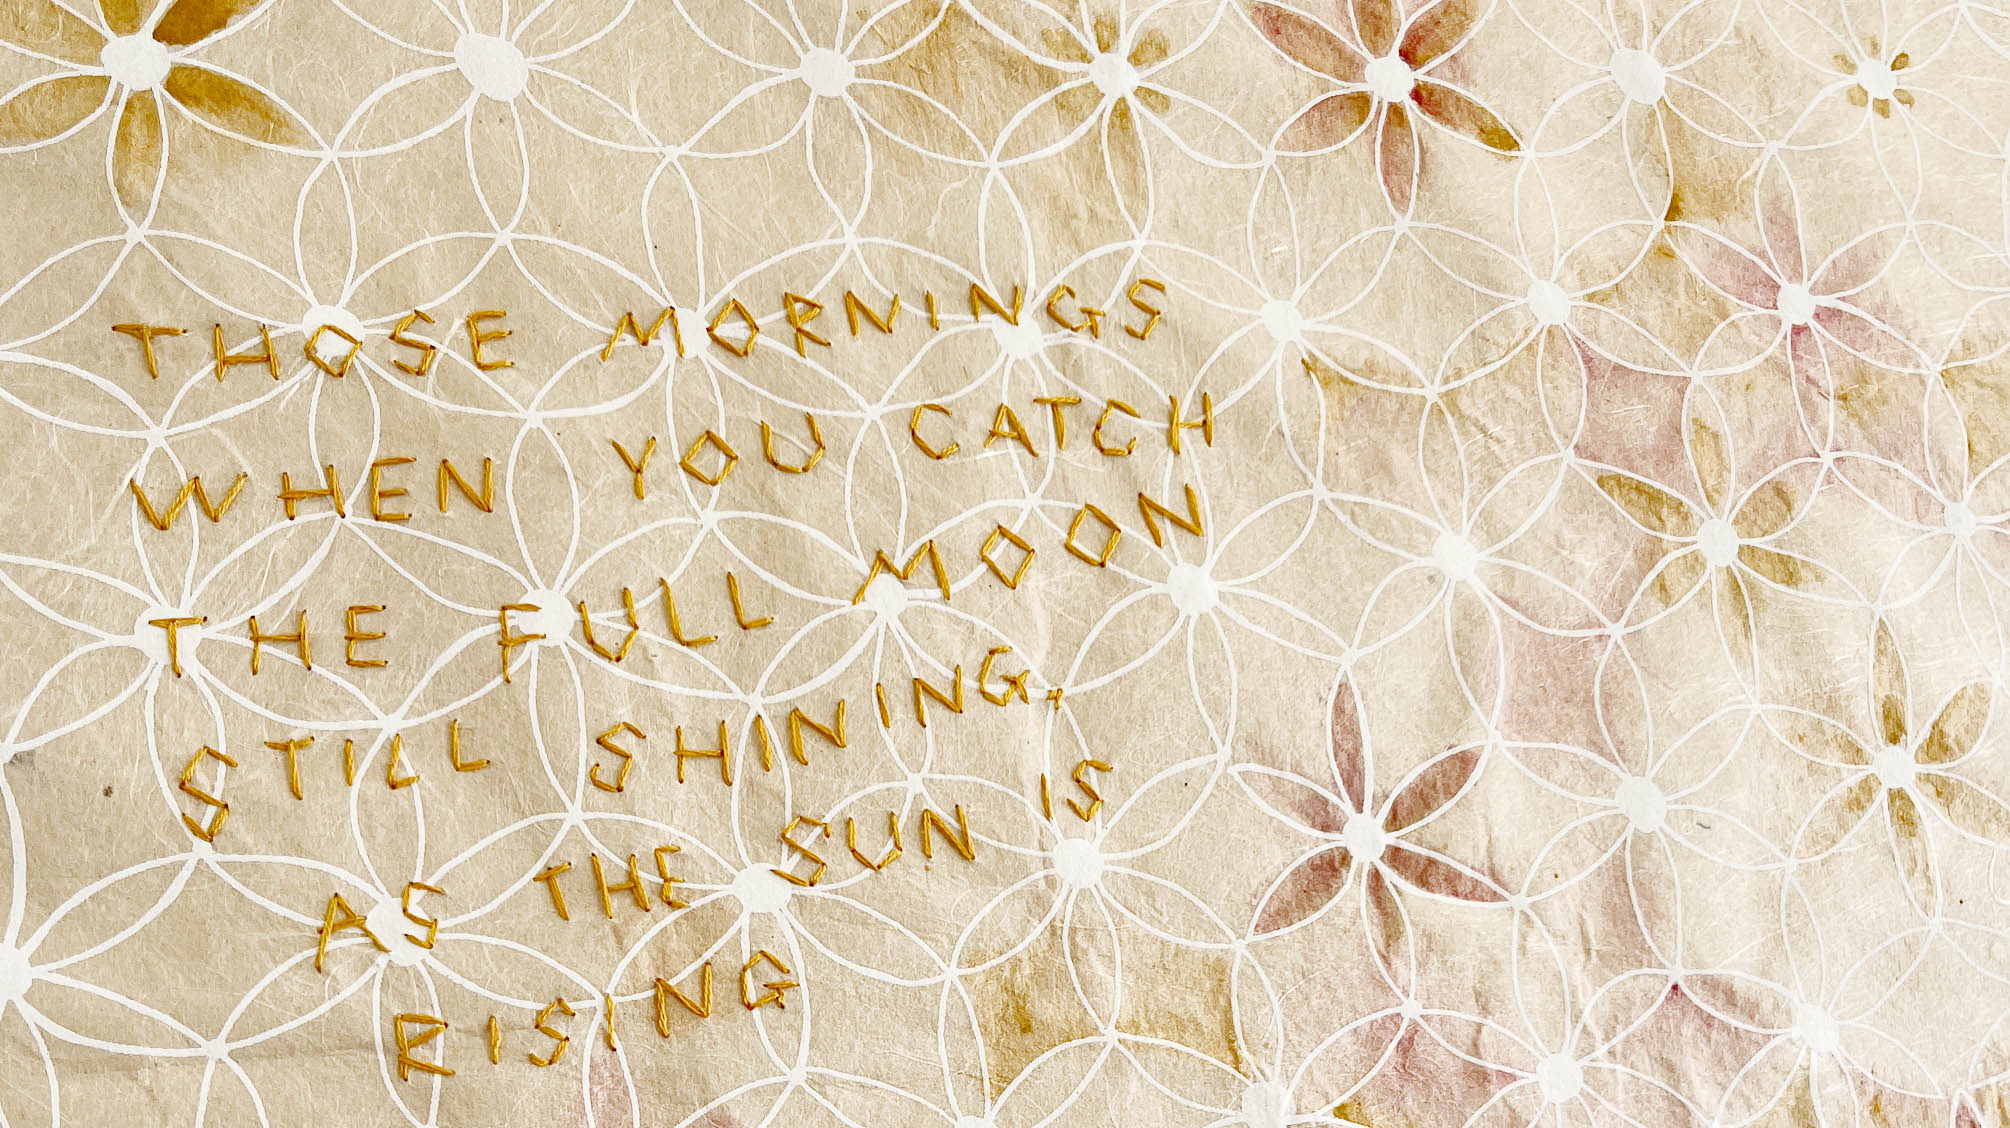 THOSE MORNINGS
WHEN YOU CATCH
THE FULL MOON
STILL SHINING,
AS THE SUN IS
RISING